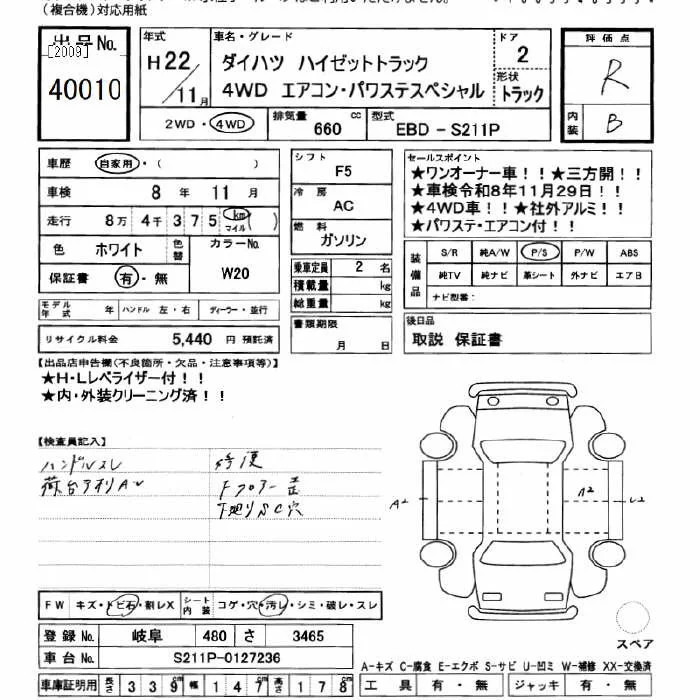 (複合機)対応用紙
出品No.
[2009]
40010
年式
H22/11月
車名・グレード
ダイハツ ハイゼットトラック
4WD エアコン・パワステスペシャル
ドア
2
形状
トラック
評価点
R
内装
B
2WD・4WD
排気量
660 cc
型式
EBD-S211P
車歴
自家用・( )
車検
8年 11月
走行
8万 4千 3 7 5 km マイル ( )
色
ホワイト
色替
カラーNo.
W20
保証書
有・無
シフト
F5
冷房
AC
燃料
ガソリン
乗車定員 2 名
積載量 kg
総重量 kg
セールスポイント
★ワンオーナー車!!★三方開!!
★車検令和8年11月29日!!
★4WD車!!★社外アルミ!!
★パワステ・エアコン付!!
装備品
S/R 純A/W P/S P/W ABS
純TV 純ナビ 革シート 外ナビ エアB
ナビ型番:
モデル年式 年 ハンドル 左・右 ディーラー・並行
リサイクル料金 5,440 円 預託済
書類期限
月 日
後日品
取説 保証書
【出品店申告欄(不良箇所・欠品・注意事項等)】
★H・Lレベライザー付!!
★内・外装クリーニング済!!
【検査員記入】
ハンドルスレ
Fフロアー
A2
A2
FW キズ・トビ石・割レX
シート内装 コゲ・穴・汚レ・シミ・破レ・スレ
登録No. 岐阜 480 さ 3465
車台No. S211P-0127236
車庫証明用 長さ 3 3 9 cm 幅 1 4 7 cm 高さ 1 7 8 cm
スペア
A-キズ C-腐食 E-エクボ S-サビ U-凹ミ W-補修 XX-交換済
工具 有・無 ジャッキ 有・無